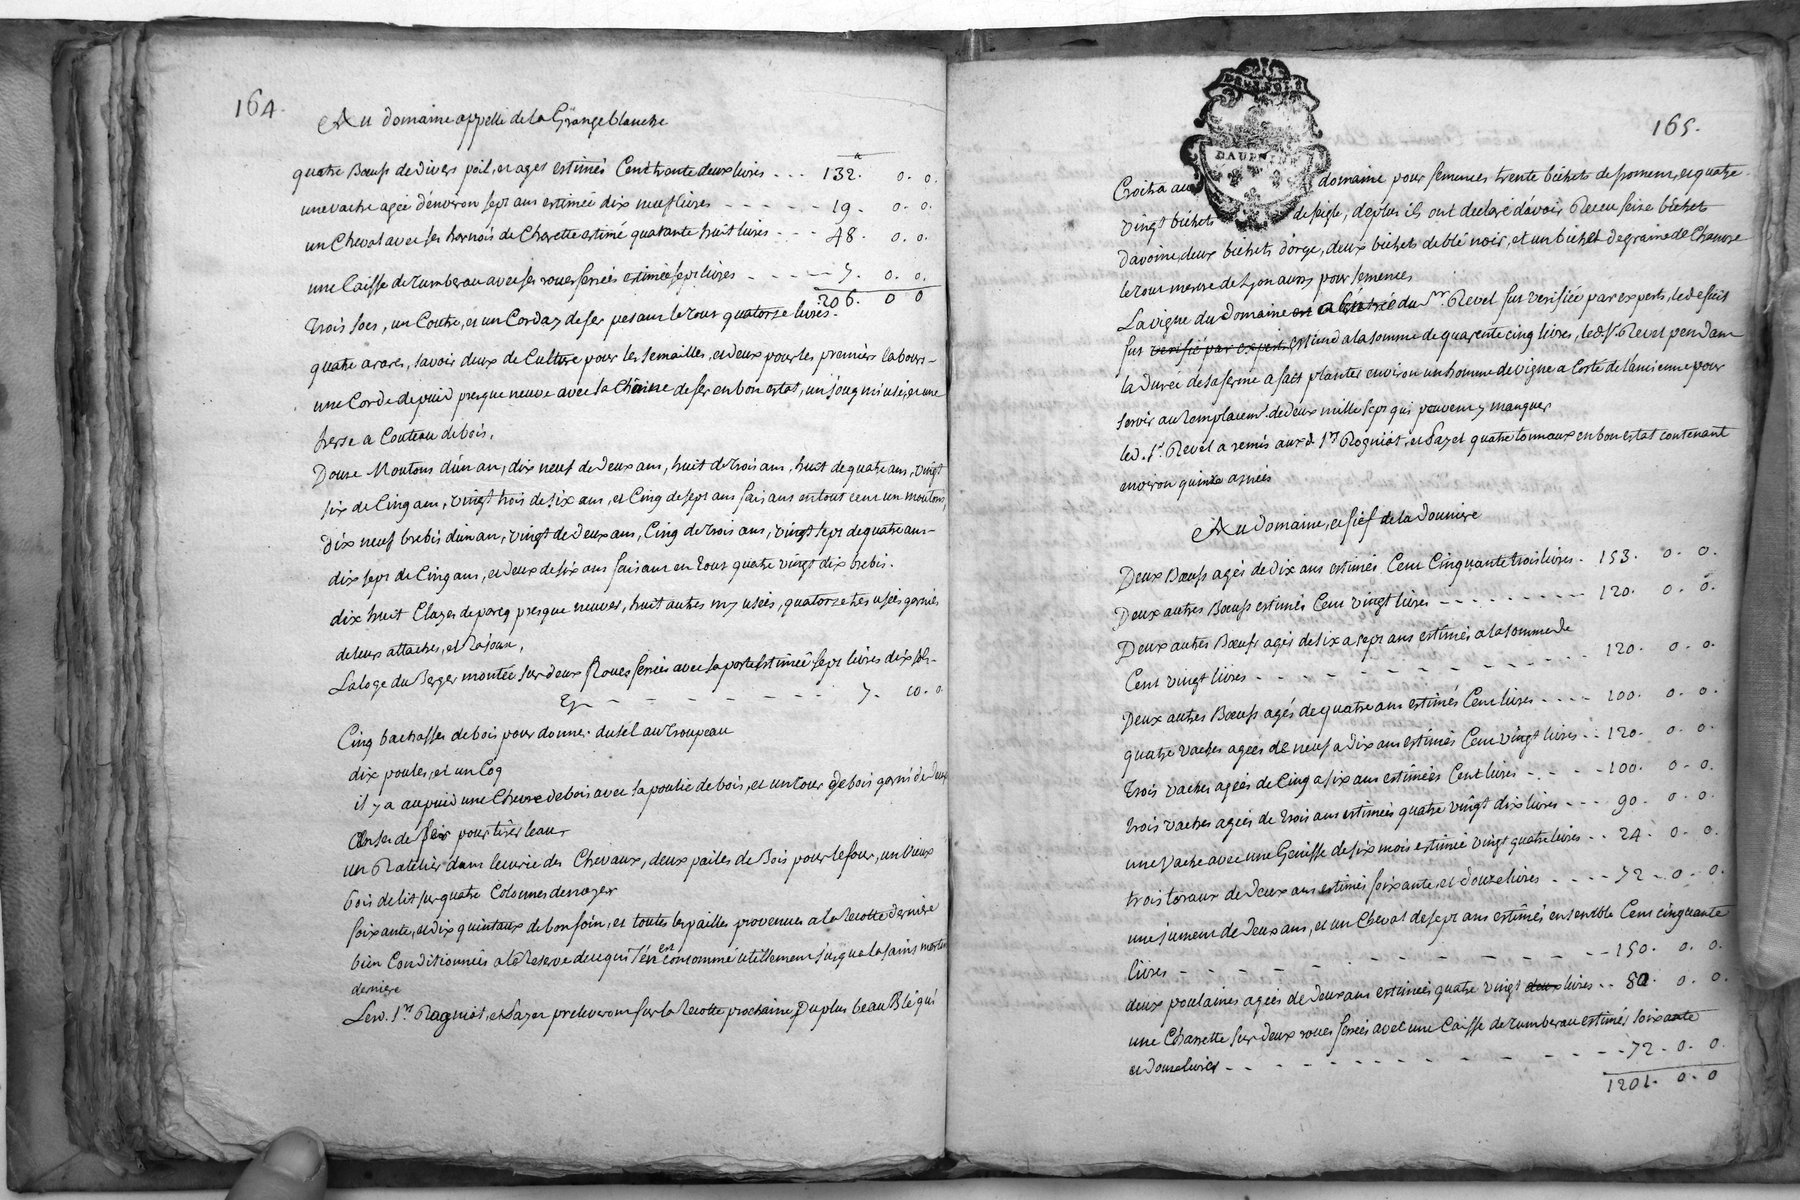 164.
Au domaine appellé de la Grange blanche
quatre Bœufs de divers poil, et ages estimés Cent trente deux livres - - - 132. 0. 0.
une vache agée d'environ sept ans estimée dix neuf livres - - - - - - 19. 0. 0.
un Cheval avec ses harnois de Charette estimé quarante huit livres - - - 48. 0. 0.
une Caisse de tumberau avec ses roues ferrées estimée sept livres - - - - - 7. 0. 0.
206. 0 0
trois socs, un Coutre, et un Corday de fer pesant le tout quatorze livres.
quatre arares, savoir deux de Culture pour les semailles, et deux pour les premiers labours -
une Corde de puid presque neuve avec la Chaine de fer en bon estat, un joug mi usé, et une
herse a Couteau de bois.
Douze Moutons d'un an, dix neuf de deux ans, huit de trois ans, huit de quatre ans, vingt
six de Cinq ans, vingt trois de six ans, et Cinq de sept ans faisans en tout cent un moutons,
dix neuf brebis d'un an, vingt de deux ans, Cinq de trois ans, vingt sept de quatre ans -
dix sept de Cinq ans, et deux de six ans faisant en tout quatre vingt dix brebis.
dix huit Clayes de parcq presque neuves, huit autres my usées, quatorze tes usées garnies
de leurs attaches, et
La loge du Berger montée sur deux Roues ferrées avec sa porte Estimée sept livres dix sols -
Cy - - - - - - - 7. 10. 0
Cinq bachasses de bois pour donner du sel au troupeau
dix poules, et un Coq
il y a au puid une Chevre de bois avec sa poulie de bois, et un tour de bois garni de deux
Anses de fer pour tirer leau
un Ratelier dans lecurie des Chevaux, deux pailes de Bois pour le four, un vieux
bois de lit sur quatre Colonnes de noyer
soixante, et dix quintaux de bon foin, et toutes les pailles provenues a la recolte derniere
bien Conditionnées a la Reserve de ce qui s'en est consommé utillement jusque la saint martin
derniere
Lesd. Srs Rogniat, et Sayet preleveront sur la recolte prochaine Du plus beau Blé qui
165.
DAUPHINE
Croitra au domaine pour semences trente bichets de froment, et quatre
vingt bichets de seigle, de plus ils ont declaré d'avoir Receu seize bichets
d'avoine, deux bichets d'orge, deux bichets de blé noir, et un bichet de graine de Chanvre
le tout mesure de Lyon aussy pour semences
La vigne du domaine du Sr. Revel fut verifiée par experts, le deficit
fut verifié par experts estimé a la somme de quarente cinq livres, led. Sr. Revel pendant
la durée de sa ferme a fait planter environ un homme de vigne a Costé de l'ancienne pour
servir au remplacemt. de deux mille seps qui peuvent y manquer
led. Sr. Revel a remis aux d. Srs Rogniat, et Sayet quatre tonneaux en bon estat contenant
environ quinze asnées
Au Domaine, et fief de la Douniere
Deux Bœufs agés de dix ans estimés Cent Cinquante trois livres. 153. 0. 0.
Deux autres Bœufs estimés Cent vingt livres - - - - - - - - - 120. 0. 0.
Deux autres Bœufs agés de six a sept ans estimés a la somme de
Cent vingt livres - - - - - - - - - - 120. 0. 0.
Deux autres Bœufs agés de quatre ans estimés Cent livres - - - - 100. 0. 0.
quatre vaches agées de neuf a dix ans estimés Cent vingt livres - - 120. 0. 0
Trois vaches agées de Cinq a six ans estimées Cent livres - - - - 100. 0. 0.
trois vaches agées de trois ans estimées quatre vingt dix livres - - - 90. 0. 0
une vache avec une Genisse de six mois estimée vingt quatre livres - - 24. 0. 0
trois toraux de deux ans estimés soixante, et douze livres - - - - 72 - 0. 0.
une jument de deux ans, et un Cheval de sept ans estimés ensemble Cent cinquante
livres - - - - - - - - - - 150. 0. 0
deux poulaines agées de deux ans estimées quatre vingt deux livres - - 80. 0. 0
une Charrette sur deux roues ferrées avec une Caisse de tumberau estimés soixante
et douze livres - - - - - - - - - - - 72. 0. 0
1201. 0. 0